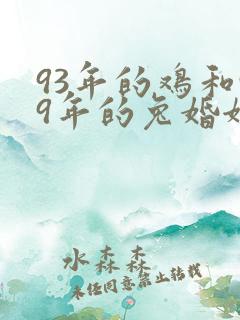 93年的鸡和
9年的兔婚
水森森
未经同意禁止转载